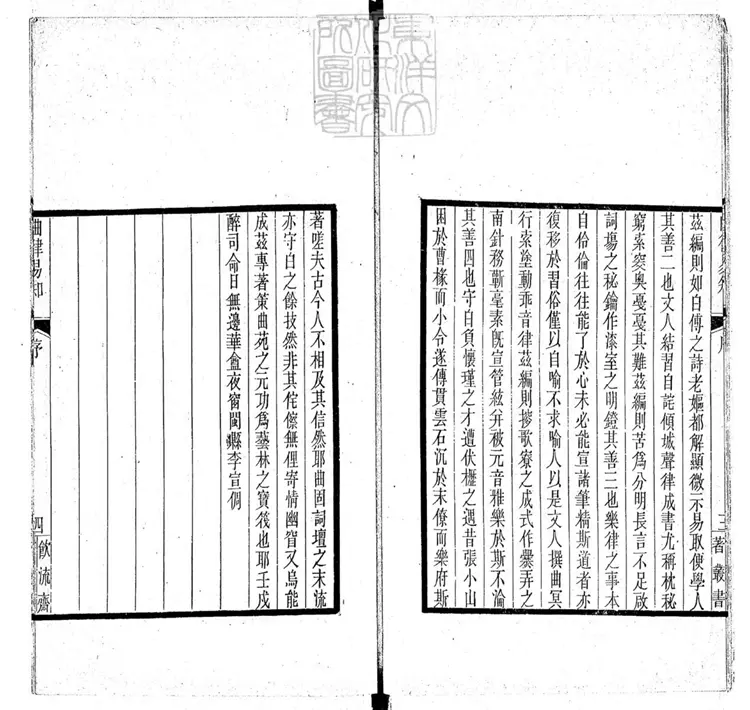 茲編則如白傅之詩老嫗都解顯微示易取便學人
其善二也文人結習自詫傾城聲律成書尤稱枕秘
窮索窔奧戞戞其難茲編則苦爲分明長言不足啟
詞塲之秘鑰作漆室之明鐙其善三也樂律之事本
自伶倫往往能了於心未必能宣諸筆精斯道者亦
復移於習俗僅以自喻不求喻人以是文人撰曲冥
行索塗動乖音律茲編則摉歌寮之成式作爨弄之
南針務蘄毫素旣宣管絃幷被元音雅樂於斯不淪
其善四也守白負懷瑾之才遭伏櫪之遇昔張小山
困於曹椽而小令遂傳貫雲石沉於末僚而樂府斯
三
著叢書
序
著嗟夫古今人不相及其信然耶曲固詞壇之末流
亦守白之餘技然非其侘傺無俚寄情幽窅又烏能
成茲專著策曲苑之元功爲藝林之寶筏也耶壬戍
醉司命日無邊華盦夜窗閩縣李宣倜
曲律易知
序
四
飲流齋
東洋文化研究所圖書